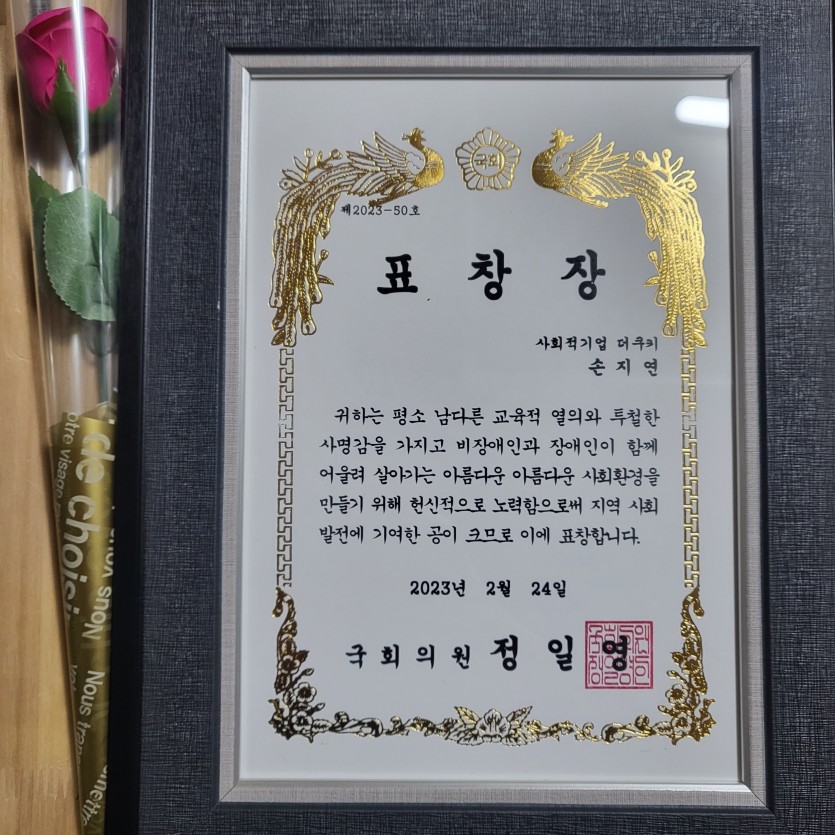 국회
제2023-50호
표 창 장
사회적기업 더쿠키
손 지 연
귀하는 평소 남다른 교육적 열의와 투철한
사명감을 가지고 비장애인과 장애인이 함께
어울려 살아가는 아름다운 아름다운 사회환경을
만들기 위해 헌신적으로 노력함으로써 지역 사회
발전에 기여한 공이 크므로 이에 표창합니다.
2023년 2월 24일
국 회 의 원 정 일 영
de choisir
otre visage
Nous
Nous tran